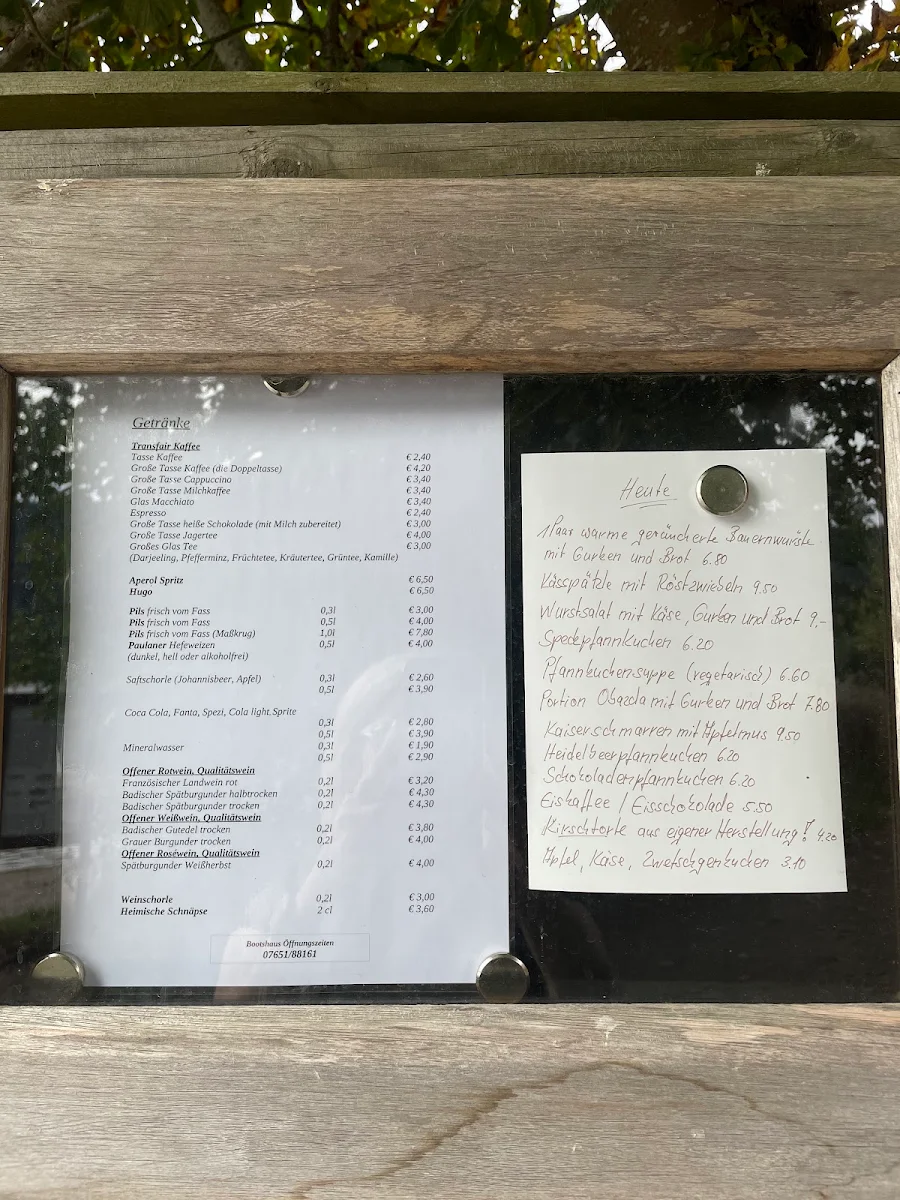 Getränke
Transfair Kaffee
Tasse Kaffee € 2,40
Große Tasse Kaffee (die Doppeltasse) € 4,20
Große Tasse Cappuccino € 3,40
Große Tasse Milchkaffee € 3,40
Glas Macchiato € 3,40
Espresso € 2,40
Große Tasse heiße Schokolade (mit Milch zubereitet) € 3,00
Große Tasse Jagertee € 4,00
Großes Glas Tee € 3,00
(Darjeeling, Pfefferminz, Früchtetee, Kräutertee, Grüntee, Kamille)
Aperol Spritz € 6,50
Hugo € 6,50
Pils frisch vom Fass 0,3l € 3,00
Pils frisch vom Fass 0,5l € 4,00
Pils frisch vom Fass (Maßkrug) 1,0l € 7,80
Paulaner Hefeweizen 0,5l € 4,00
(dunkel, hell oder alkoholfrei)
Saftschorle (Johannisbeer, Apfel) 0,3l € 2,60
0,5l € 3,90
Coca Cola, Fanta, Spezi, Cola light,Sprite
0,3l € 2,80
0,5l € 3,90
Mineralwasser 0,3l € 1,90
0,5l € 2,90
Offener Rotwein, Qualitätswein
Französischer Landwein rot 0,2l € 3,20
Badischer Spätburgunder halbtrocken 0,2l € 4,30
Badischer Spätburgunder trocken 0,2l € 4,30
Offener Weißwein, Qualitätswein
Badischer Gutedel trocken 0,2l € 3,80
Grauer Burgunder trocken 0,2l € 4,00
Offener Roséwein, Qualitätswein
Spätburgunder Weißherbst 0,2l € 4,00
Weinschorle 0,2l € 3,00
Heimische Schnäpse 2 cl € 3,60
Bootshaus Öffnungszeiten
07651/88161
Heute
1 Paar warme geräucherte Bauernwürste
mit Gurken und Brot 6.80
Kässpätzle mit Röstzwiebeln 9.50
Wurstsalat mit Käse, Gurken und Brot 9,-
Speckpfannkuchen 6.20
Pfannkuchensuppe (vegetarisch) 6.60
Portion Obazda mit Gurken und Brot 7.80
Kaiserschmarren mit Apfelmus 9.50
Heidelbeerpfannkuchen 6.20
Schokoladenpfannkuchen 6.20
Eiskaffee / Eisschokolade 5.50
Kirschtorte aus eigener Herstellung! 4.20
Apfel, Käse, Zwetschgenkuchen 3.10